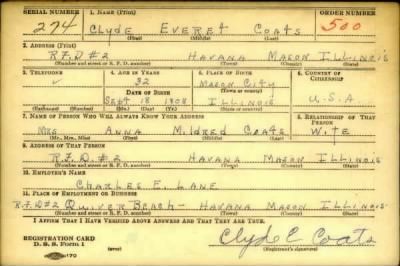 SERIAL NUMBER 1. NAME (Print) ORDER NUMBER
274 Clyde Everet Coats 500
(First) (Middle) (Last)
2. ADDRESS (Print)
R.F.D #2 Havana Mason Illinois
(Number and street or R. F. D. number) (Town) (County) (State)
3. TELEPHONE 4. AGE IN YEARS 5. PLACE OF BIRTH 6. COUNTRY OF CITIZENSHIP
32 Mason City
(Town or county)
DATE OF BIRTH
Sept 18 1908 Illinois U.S.A
(Mo.) (Day) (Yr.) (State or country)
7. NAME OF PERSON WHO WILL ALWAYS KNOW YOUR ADDRESS 8. RELATIONSHIP OF THAT PERSON
Mrs. Anna Mildred Coats Wife
(Mr., Mrs., Miss) (First) (Middle) (Last)
9. ADDRESS OF THAT PERSON
R.F.D. #2 Havana Mason Illinois
(Number and street or R. F. D. number) (Town) (County) (State)
10. EMPLOYER'S NAME
Charles E. Lane
11. PLACE OF EMPLOYMENT OR BUSINESS
R.F.D #2 Quiver Beach - Havana Mason Illinois
(Number and street or R. F. D. number) (Town) (County) (State)
I AFFIRM THAT I HAVE VERIFIED ABOVE ANSWERS AND THAT THEY ARE TRUE.
REGISTRATION CARD
D. S. S. Form 1 Clyde E Coats
(over) (Registrant's signature)